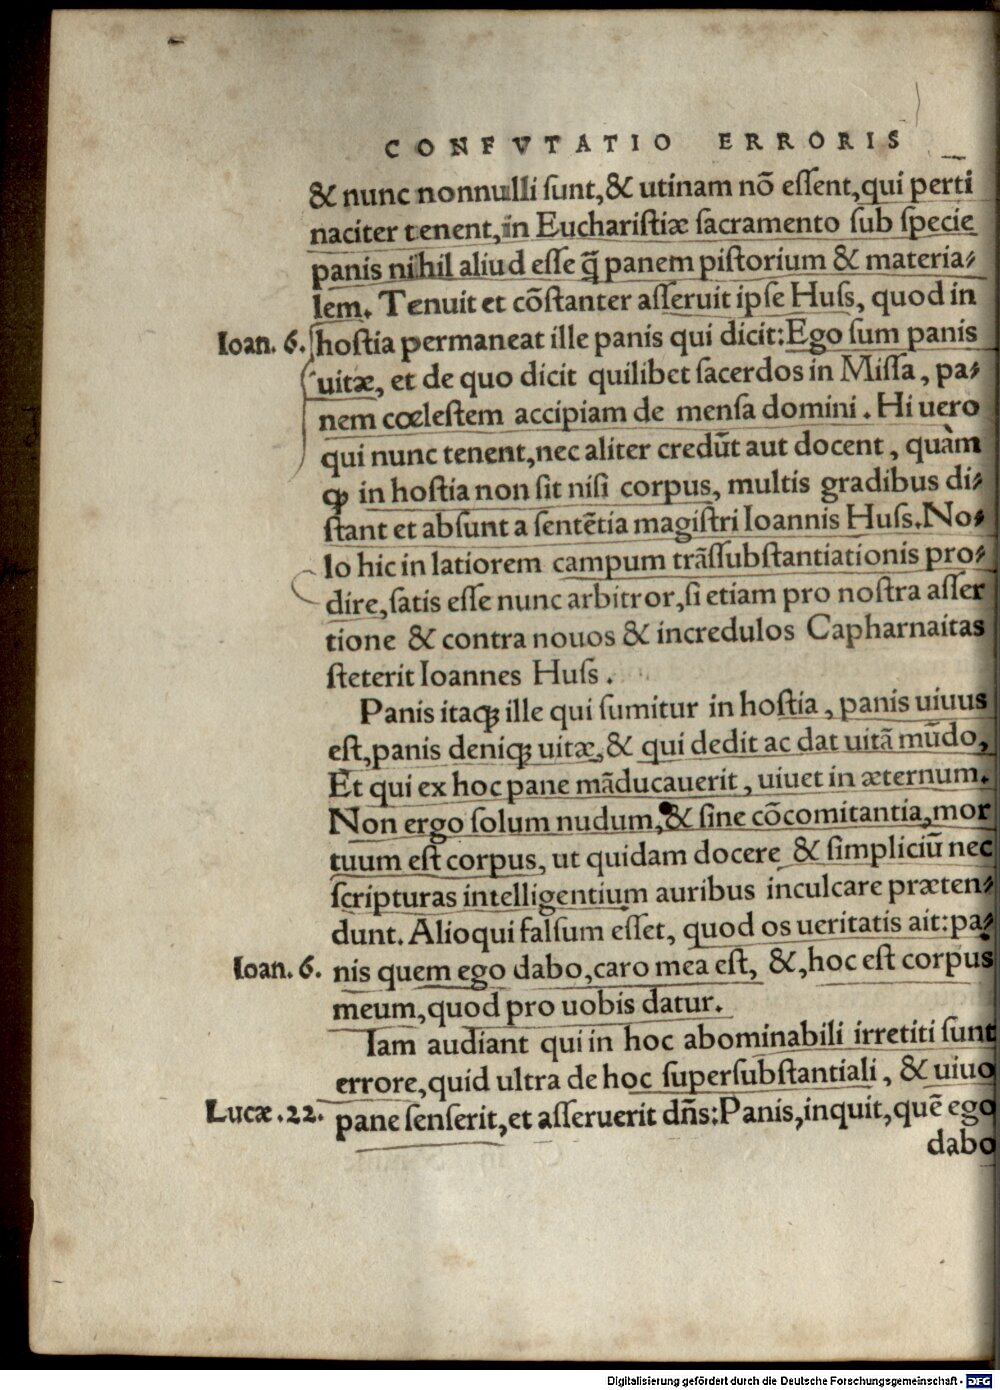 CONFVTATIO ERRORIS
& nunc nonnulli ſunt, & utinam nõ eſſent, qui perti
naciter tenent, in Euchariſtiæ ſacramento ſub ſpecie
panis nihil aliud eſſe q̃ panem piſtorium & materia⸗
lem. Tenuit et cõſtanter aſſeruit ipſe Huſs, quod in
Ioan. 6. hoſtia permaneat ille panis qui dicit: Ego ſum panis
uitæ, et de quo dicit quilibet ſacerdos in Miſſa, pa⸗
nem cœleſtem accipiam de menſa domini. Hi uero
qui nunc tenent, nec aliter credũt aut docent, quàm
ꝙ in hoſtia non ſit niſi corpus, multis gradibus di⸗
ſtant et abſunt a ſentẽtia magiſtri Ioannis Huſs. No⸗
lo hic in latiorem campum trãſſubſtantiationis pro⸗
dire, ſatis eſſe nunc arbitror, ſi etiam pro noſtra aſſer
tione & contra nouos & incredulos Capharnaitas
ſteterit Ioannes Huſs.
Panis itaqꝫ ille qui ſumitur in hoſtia, panis uiuus
eſt, panis deniqꝫ uitæ, & qui dedit ac dat uitã mũdo,
Et qui ex hoc pane mãducauerit, uiuet in æternum.
Non ergo ſolum nudum, & ſine cõcomitantia, mor
tuum eſt corpus, ut quidam docere & ſimpliciũ nec
ſcripturas intelligentium auribus inculcare præten⸗
dunt. Alioqui falſum eſſet, quod os ueritatis ait: pa⸗
Ioan. 6. nis quem ego dabo, caro mea eſt, &, hoc eſt corpus
meum, quod pro uobis datur.
Iam audiant qui in hoc abominabili irretiti ſunt
errore, quid ultra de hoc ſuperſubſtantiali, & uiuo
Lucæ. 22. pane ſenſerit, et aſſeruerit dñs: Panis, inquit, quẽ ego
dabo
Digitalisierung gefördert durch die Deutsche Forschungsgemeinschaft - DFG